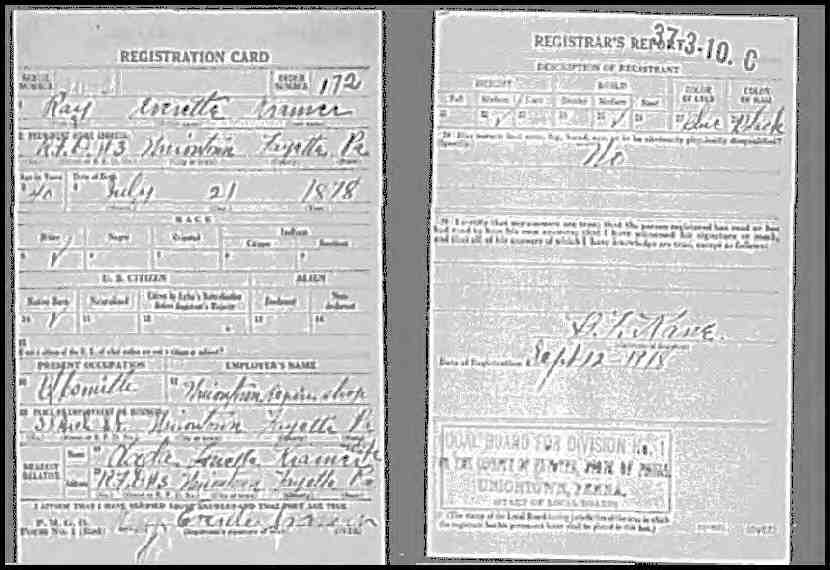 REGISTRATION CARD
SERIAL NUMBER ORDER NUMBER 172
1 Ray Everette Kramer
2 PERMANENT HOME ADDRESS:
R.F.D. #3 Uniontown Fayette Pa
Age in Years Date of Birth
3 40 4 July 21 1878
RACE
White Negro Oriental Indian
Citizen
5 ✓ 6 7 8 9
U. S. CITIZEN ALIEN
Native Born Naturalized Citizen by Father's Naturalization Before Registrant's Majority Declarant Non-declarant
10 ✓ 11 12 13 14
15
If not a citizen of the U. S., of what nation are you a citizen or subject?
PRESENT OCCUPATION EMPLOYER'S NAME
16 17 Uniontown repair shop
18 PLACE OF EMPLOYMENT OR BUSINESS:
Uniontown Fayette Pa
NEAREST RELATIVE
Name 19 Kramer
Address 20 R.F.D. #3 Uniontown Fayette Pa
I AFFIRM THAT I HAVE VERIFIED ABOVE ANSWERS AND THAT THEY ARE TRUE
P. M. G. O.
Form No. 1 (Red) Ray Everette Kramer
REGISTRAR'S REPORT
37-3-10. C
DESCRIPTION OF REGISTRANT
HEIGHT BUILD COLOR OF EYES COLOR OF HAIR
Tall Medium Short Slender Medium Stout
21 22 ✓ 23 24 25 ✓ 26 Blue Black
29 Has person lost arm, leg, hand, eye, or is he obviously physically disqualified?
(Specify.) No
30 I certify that my answers are true; that the person registered has read or has
had read to him his own answers; that I have witnessed his signature or mark,
and that all of his answers of which I have knowledge are true, except as follows:
Date of Registration Sept 12 1918
LOCAL BOARD FOR DIVISION No. 1
UNIONTOWN, PENNA.
(The stamp of the Local Board having jurisdiction of the area in which
the registrant has his permanent home shall be placed in this box.)